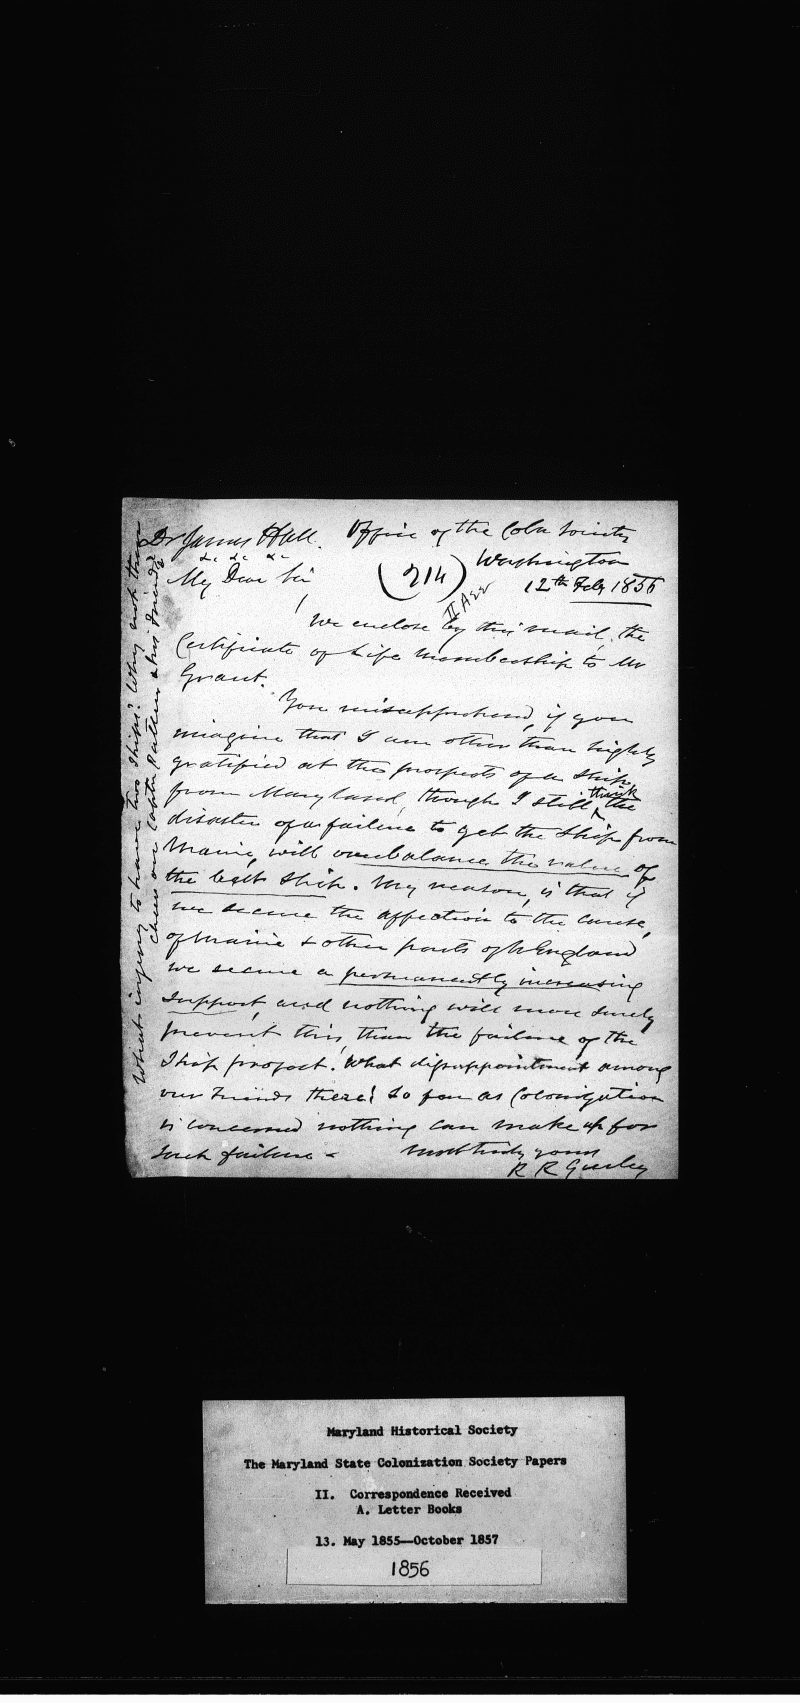 Dr James Hall. Office of the Coln Society
&c &c &c Washington
My Dear Sir (214) 12th Feby 1856
II A
We enclose by this mail, the
Certificate of Life membership to Mr
Grant.
You misapprehend, if you
imagine that I am other than highly
gratified at the prospects of a Ship
from Maryland, though I still think the
disaster of a failure to get the Ship from
Maine, will overbalance the value of
the best Ship. My reason, is that if
we secure the affection to the cause,
of Maine & other parts of N England
we secure a permanently increasing
support, and nothing will more surely
prevent this, than the failure of the
Ship project. What disappointment among
our Friends there! So far as Colonization
is concerned nothing can make up for
such failure - Most truly yours
R R Gurley
What injury to have two Ships? Why not then
cheer on Captn & his friends
Maryland Historical Society
The Maryland State Colonization Society Papers
II. Correspondence Received
A. Letter Books
13. May 1855--October 1857
1856